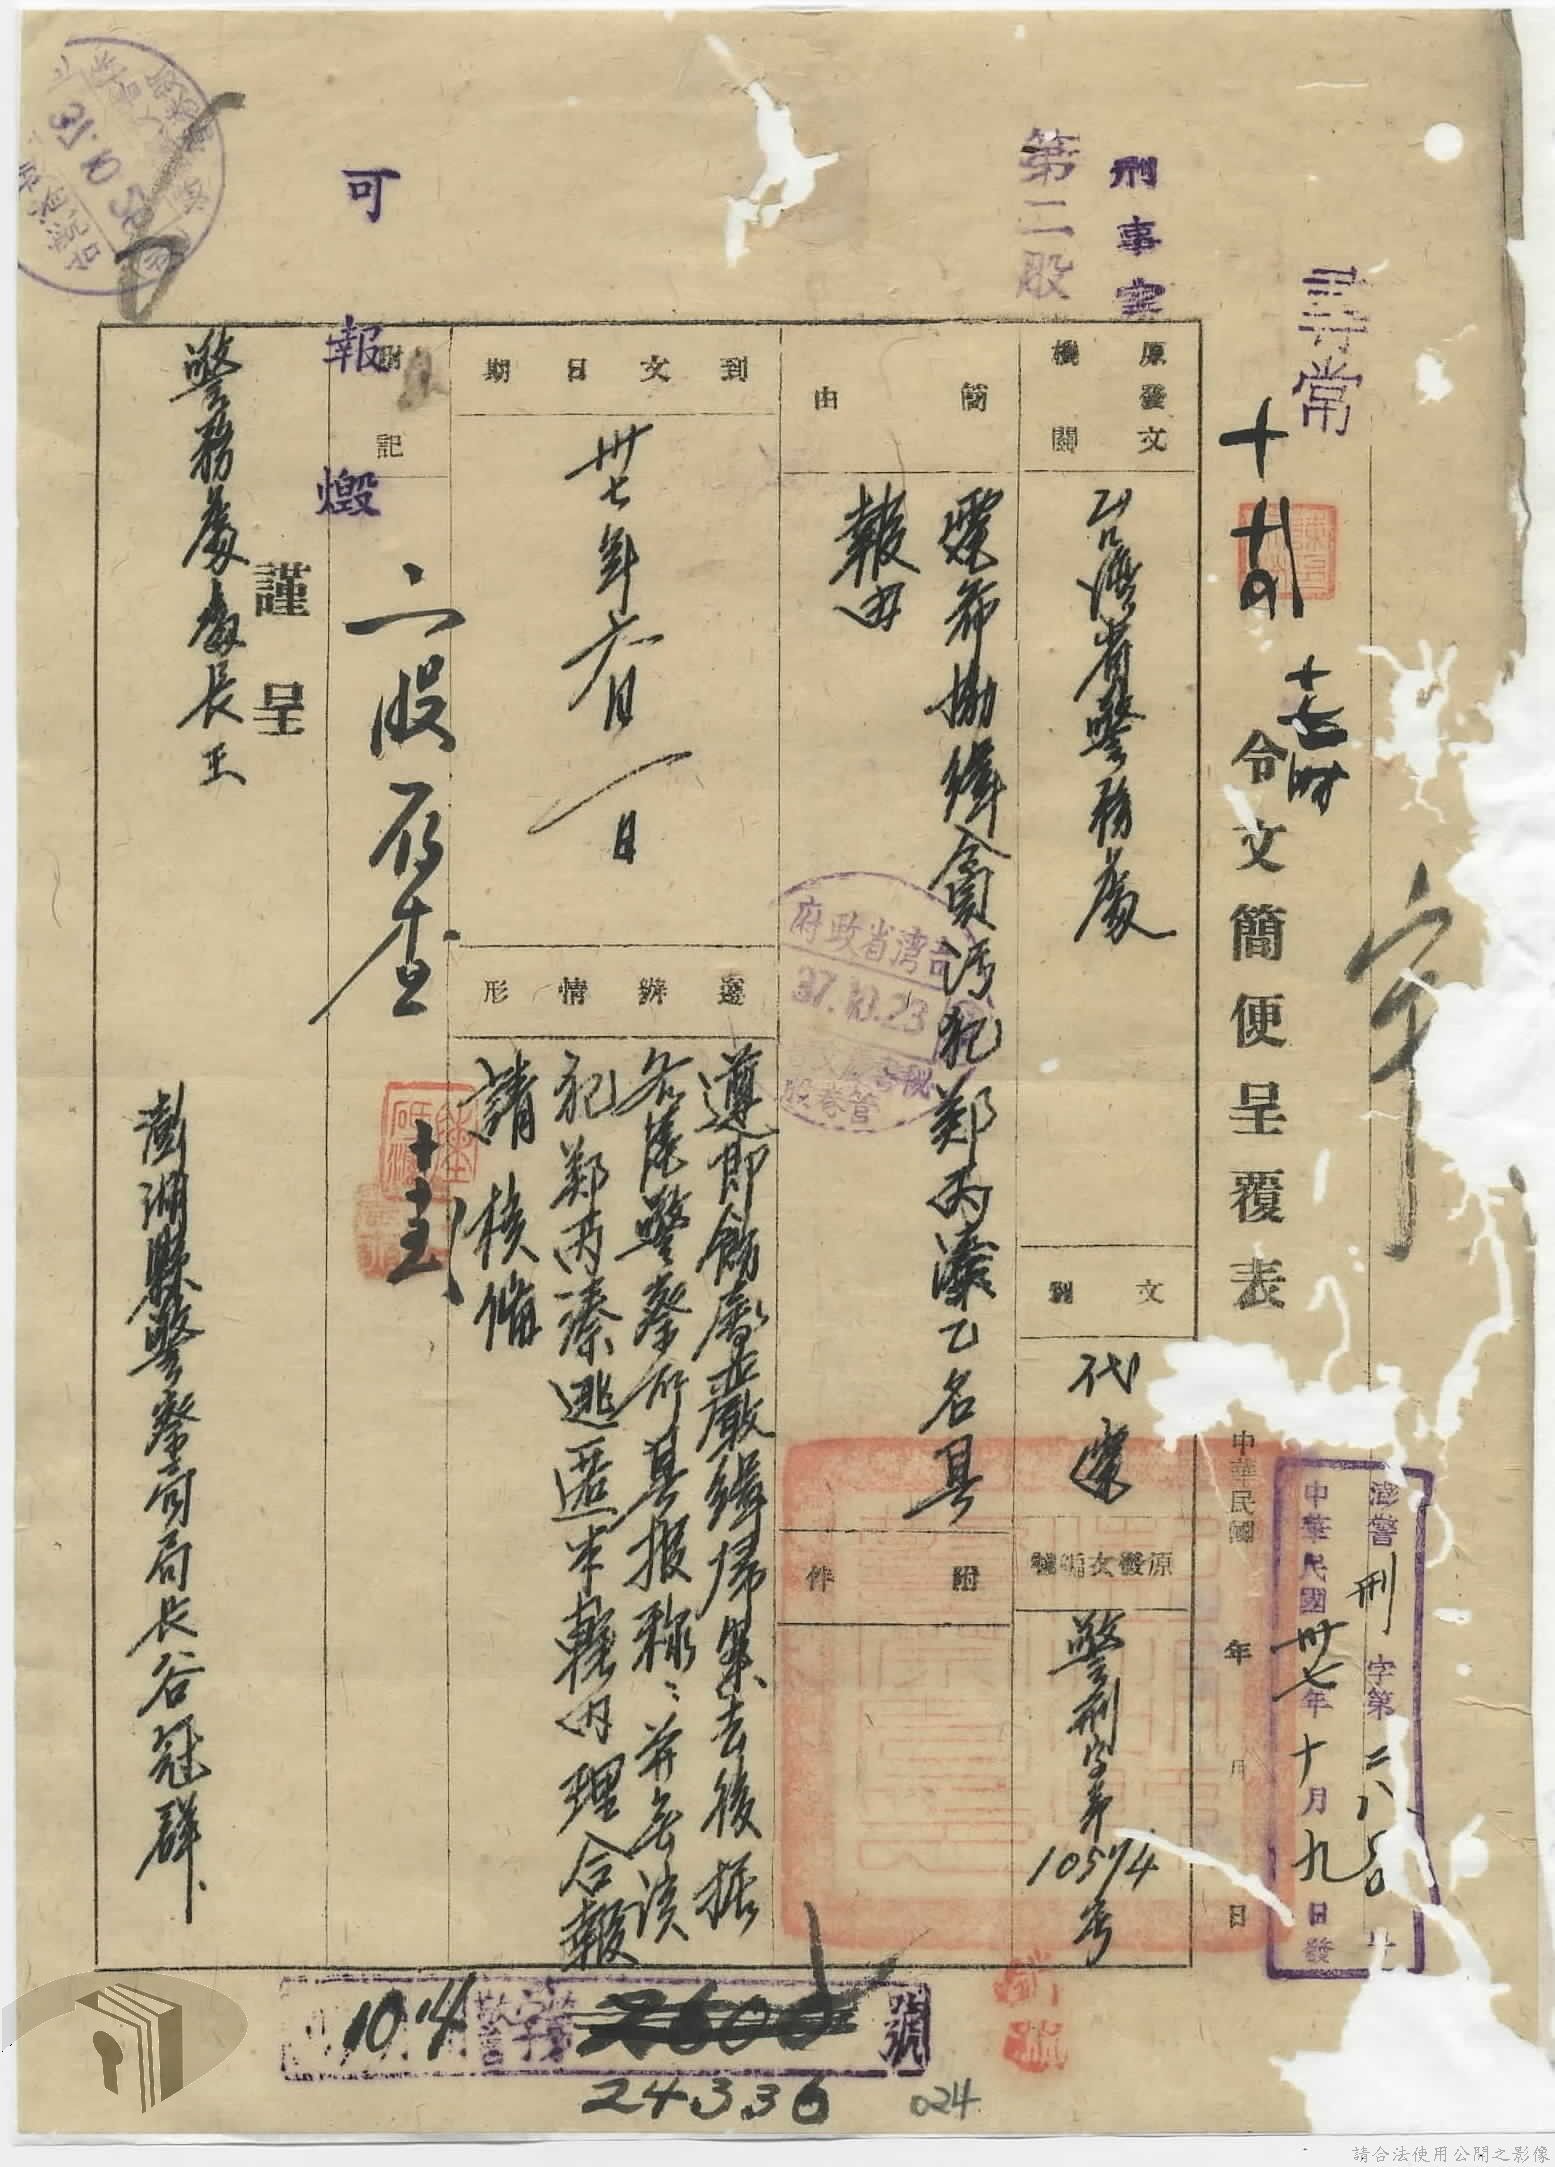 尋常
刑事室
第二股
可
報
燬
十
十六
十七時
令文簡便呈覆表
中華民國 年 月 日
澎警刑字第二八八五〇號
中華民國卅七年十月九日發
原發文機關
台灣省警務處
文別
代電
原發文編號
警刑字第10574号
簡由
電希協緝貪污犯鄭丙濠乙名具
報由
附件
到文日期
卅七年六月一日
遵辦情形
遵即飭屬嚴緝歸案去後據
各隊警察所具報称:并無該
犯鄭丙濠逃匿本轄內理合報
請核備
附記
二股存查
十
謹呈
警務處處長王
澎湖縣警察局局長谷冠群
台灣省政府
37.10.23
管卷股
警 字 號
2600
24336
024
請合法使用公開之影像